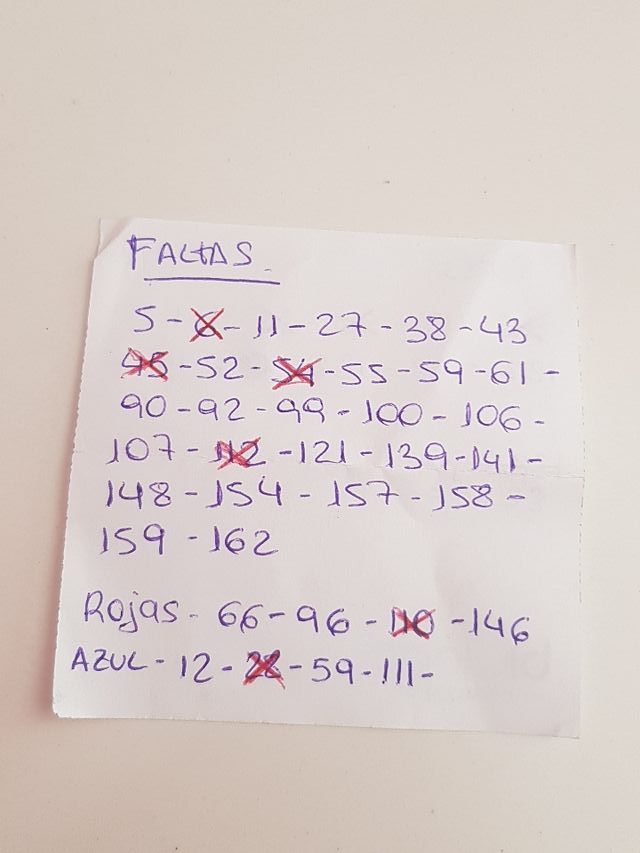 FALTAS.
5 - 6 - 11 - 27 - 38 - 43
45 - 52 - 54 - 55 - 59 - 61 -
90 - 92 - 99 - 100 - 106 -
107 - 112 - 121 - 139 - 141 -
148 - 154 - 157 - 158 -
159 - 162
Rojas - 66 - 96 - 110 - 146
AZUL - 12 - 28 - 59 - 111 -